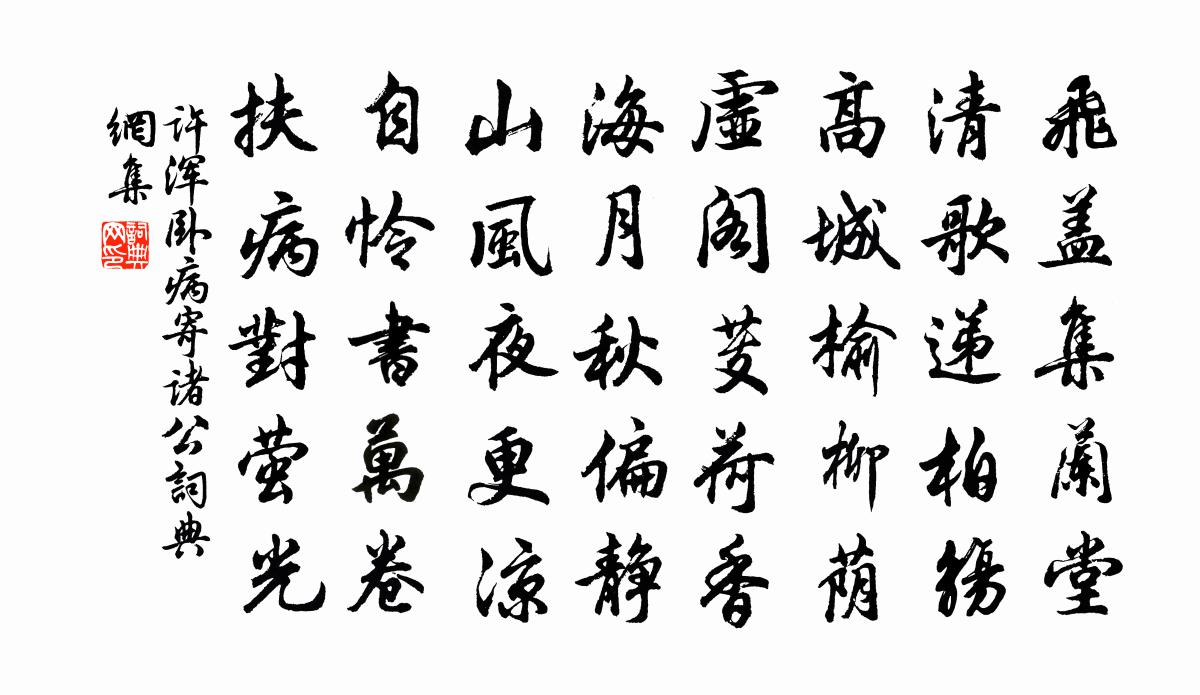 飛盖集蘭堂
清歌递柏觴
高城榆柳荫
虛阁芰荷香
海月秋偏静
山風夜更涼
自怜書萬卷
扶病對萤光
許渾卧病寄諸公詞典
網集
詞典
网印